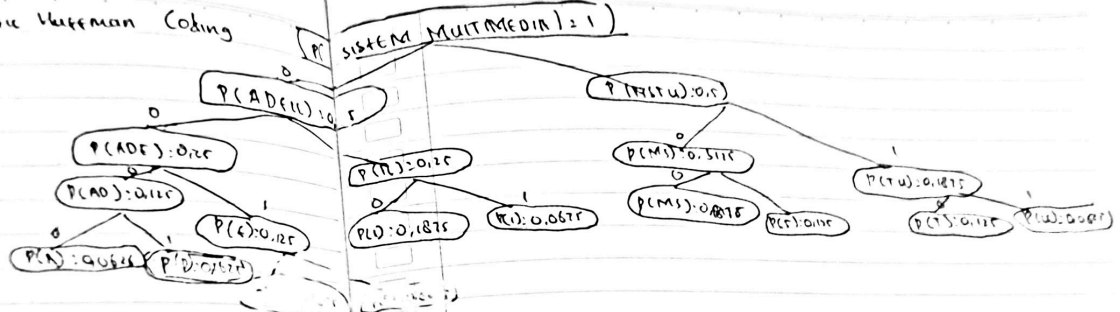 Huffman Coding
P( SISTEM MULTIMEDIA) = 1 )
0
P(ADEIL):0,5
P(MSTU):0,5
0
0
1
P(ADE):0,125
P(IL):0,125
P(MS):0,3125
P(TU):0,1875
0
P(AD):0,125
0
1
0
1
P(E):0,125
P(I):0,1875
P(L):0,0625
P(MS):0,1875
P(S):0,125
P(T):0,125
P(U):0,0625
0
1
P(A):0,0625
P(D):0,0625